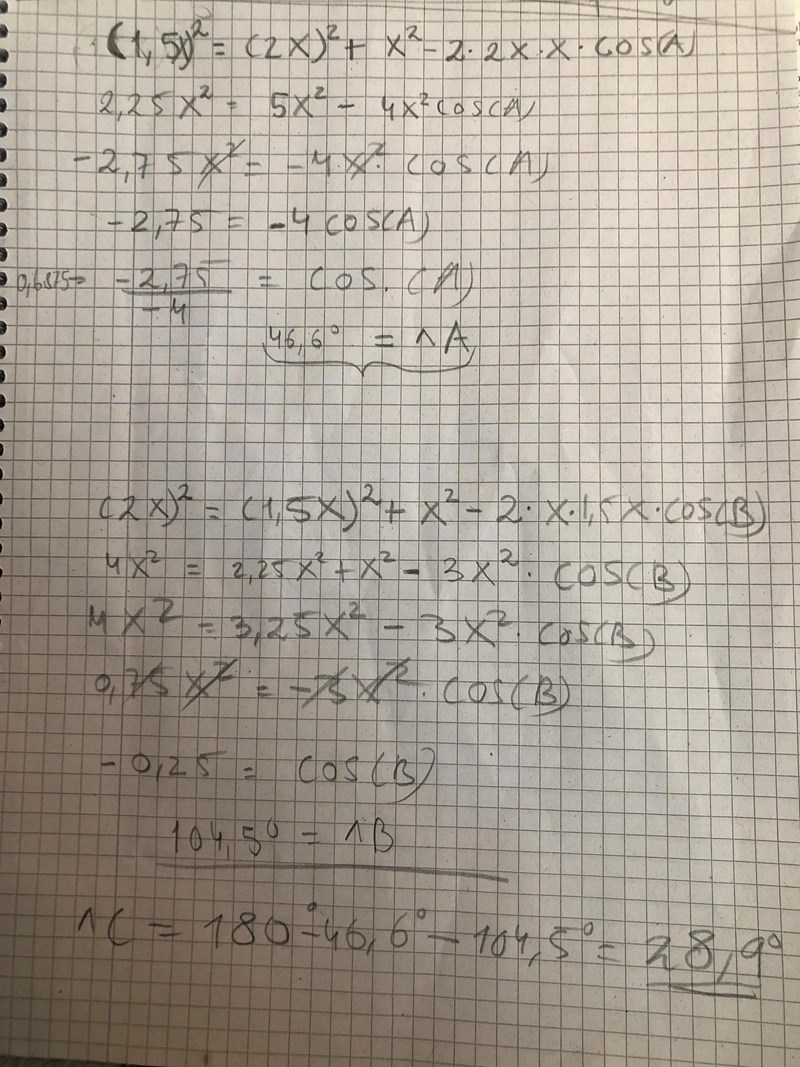 (1,5x)² = (2x)² + x² - 2·2x·x·cos(A)
2,25x² = 5x² - 4x²cos(A)
-2,75x² = -4·x²· cos(A)
-2,75 = -4cos(A)
0,6875= -2,75/-4 = cos.(A)
46,6° = ^A
(2x)² = (1,5x)² + x² - 2·x·1,5x·cos(B)
4x² = 2,25x² + x² - 3x²· cos(B)
4x² = 3,25x² - 3x²· cos(B)
0,75x² = -3x²· cos(B)
-0,25 = cos(B)
104,5° = ^B
^C = 180°-46,6°-104,5° = 28,9°